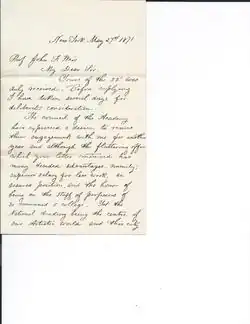 New York May 27th 1871
Prof. John F. Weir
My Dear Sir
Yours of the 22d was
duly received. Before replying
I have taken several days for
deliberate consideration.
The council of the Academy
have expressed a desire to renew
their engagement with me for another
year and although the flattering offer
which your letter contained has
many decided advantages, namely,
superior salary for less work, an
assured position and the honor of
being on the staff of professors of
so renowned a college. Yet the
National Academy being the centre of
our Artistic world and this city